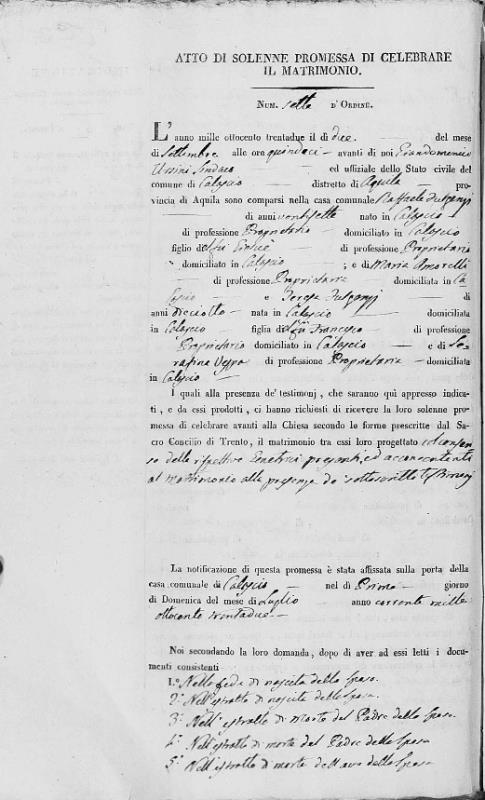 ATTO DI SOLENNE PROMESSA DI CELEBRARE
IL MATRIMONIO.
Num. sette d'Ordine.
L'anno mille ottocento trentadue il dì due del mese
di Settembre alle ore quindeci avanti di noi Giandomenico
Ursini Sindaco ed uffiziale dello Stato civile del
comune di Calascio distretto di Aquila pro-
vincia di Aquila sono comparsi nella casa comunale Raffaele Fulgenzj
di anni ventisette nato in Calascio
di professione Proprietario domiciliato in Calascio
figlio del fù di professione Proprietario
domiciliato in Calascio ; e di Maria Amorelli
di professione Proprietaria domiciliata in Ca
lascio e Teresa Fulgenzj di
anni dieciotto nata in Calascio domiciliata
in Calascio figlia del fù Francesco di professione
Proprietario domiciliato in Calascio e di Se-
rafina di professione Proprietaria domiciliata
in Calascio
I quali alla presenza de' testimonj, che saranno quì appresso indica-
ti, e da essi prodotti, ci hanno richiesti di ricevere la loro solenne pro-
messa di celebrare avanti alla Chiesa secondo le forme prescritte dal Sa-
cro Concilio di Trento, il matrimonio tra essi loro progettato col consen
so delle rispettive Genetrici presenti, ed acconsententi
al matrimonio alla presenza de' sottoscritti testimonj
La notificazione di questa promessa è stata affissata sulla porta della
casa comunale di Calascio nel dì Primo giorno
di Domenica del mese di Luglio anno corrente mille
ottocento trentadue
Noi secondando la loro domanda, dopo di aver ad essi letti i docu-
menti consistenti
1.º Nella fede di nascita dello sposo.
2º Nell'estratto di nascita della sposa.
3º Nell'estratto di morte del Padre dello sposo.
4º Nell'estratto di morte del Padre della sposa
5º Nell'estratto di morte dell'avo dello sposo